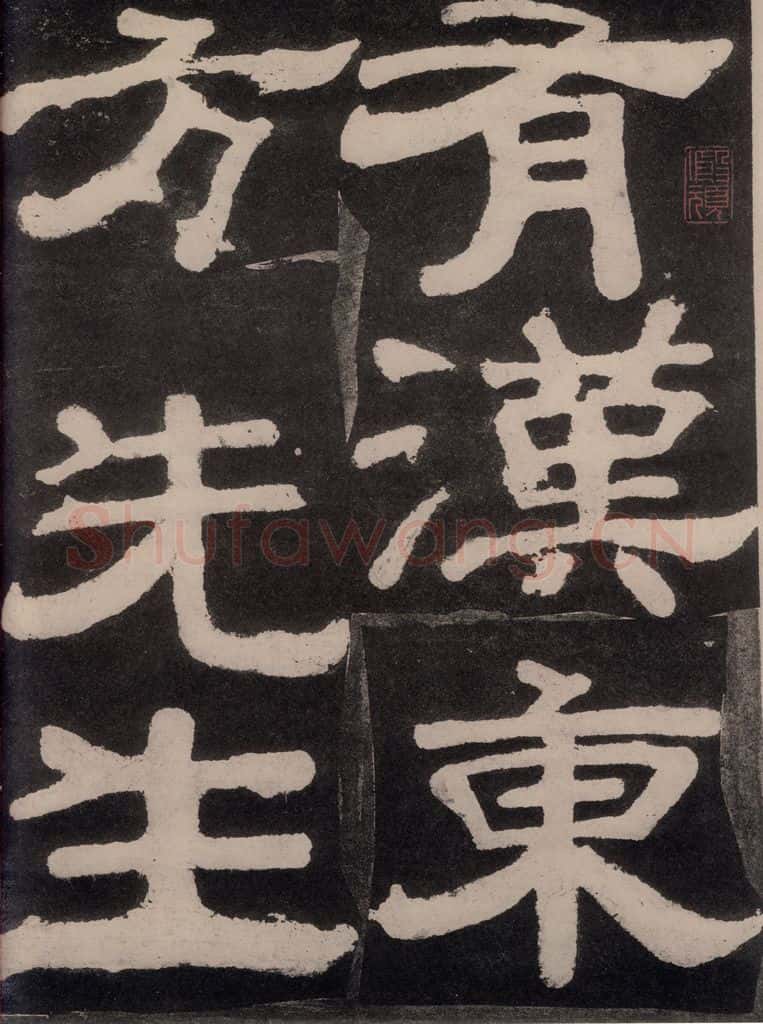 有漢東
方先生
Shufawang.CN